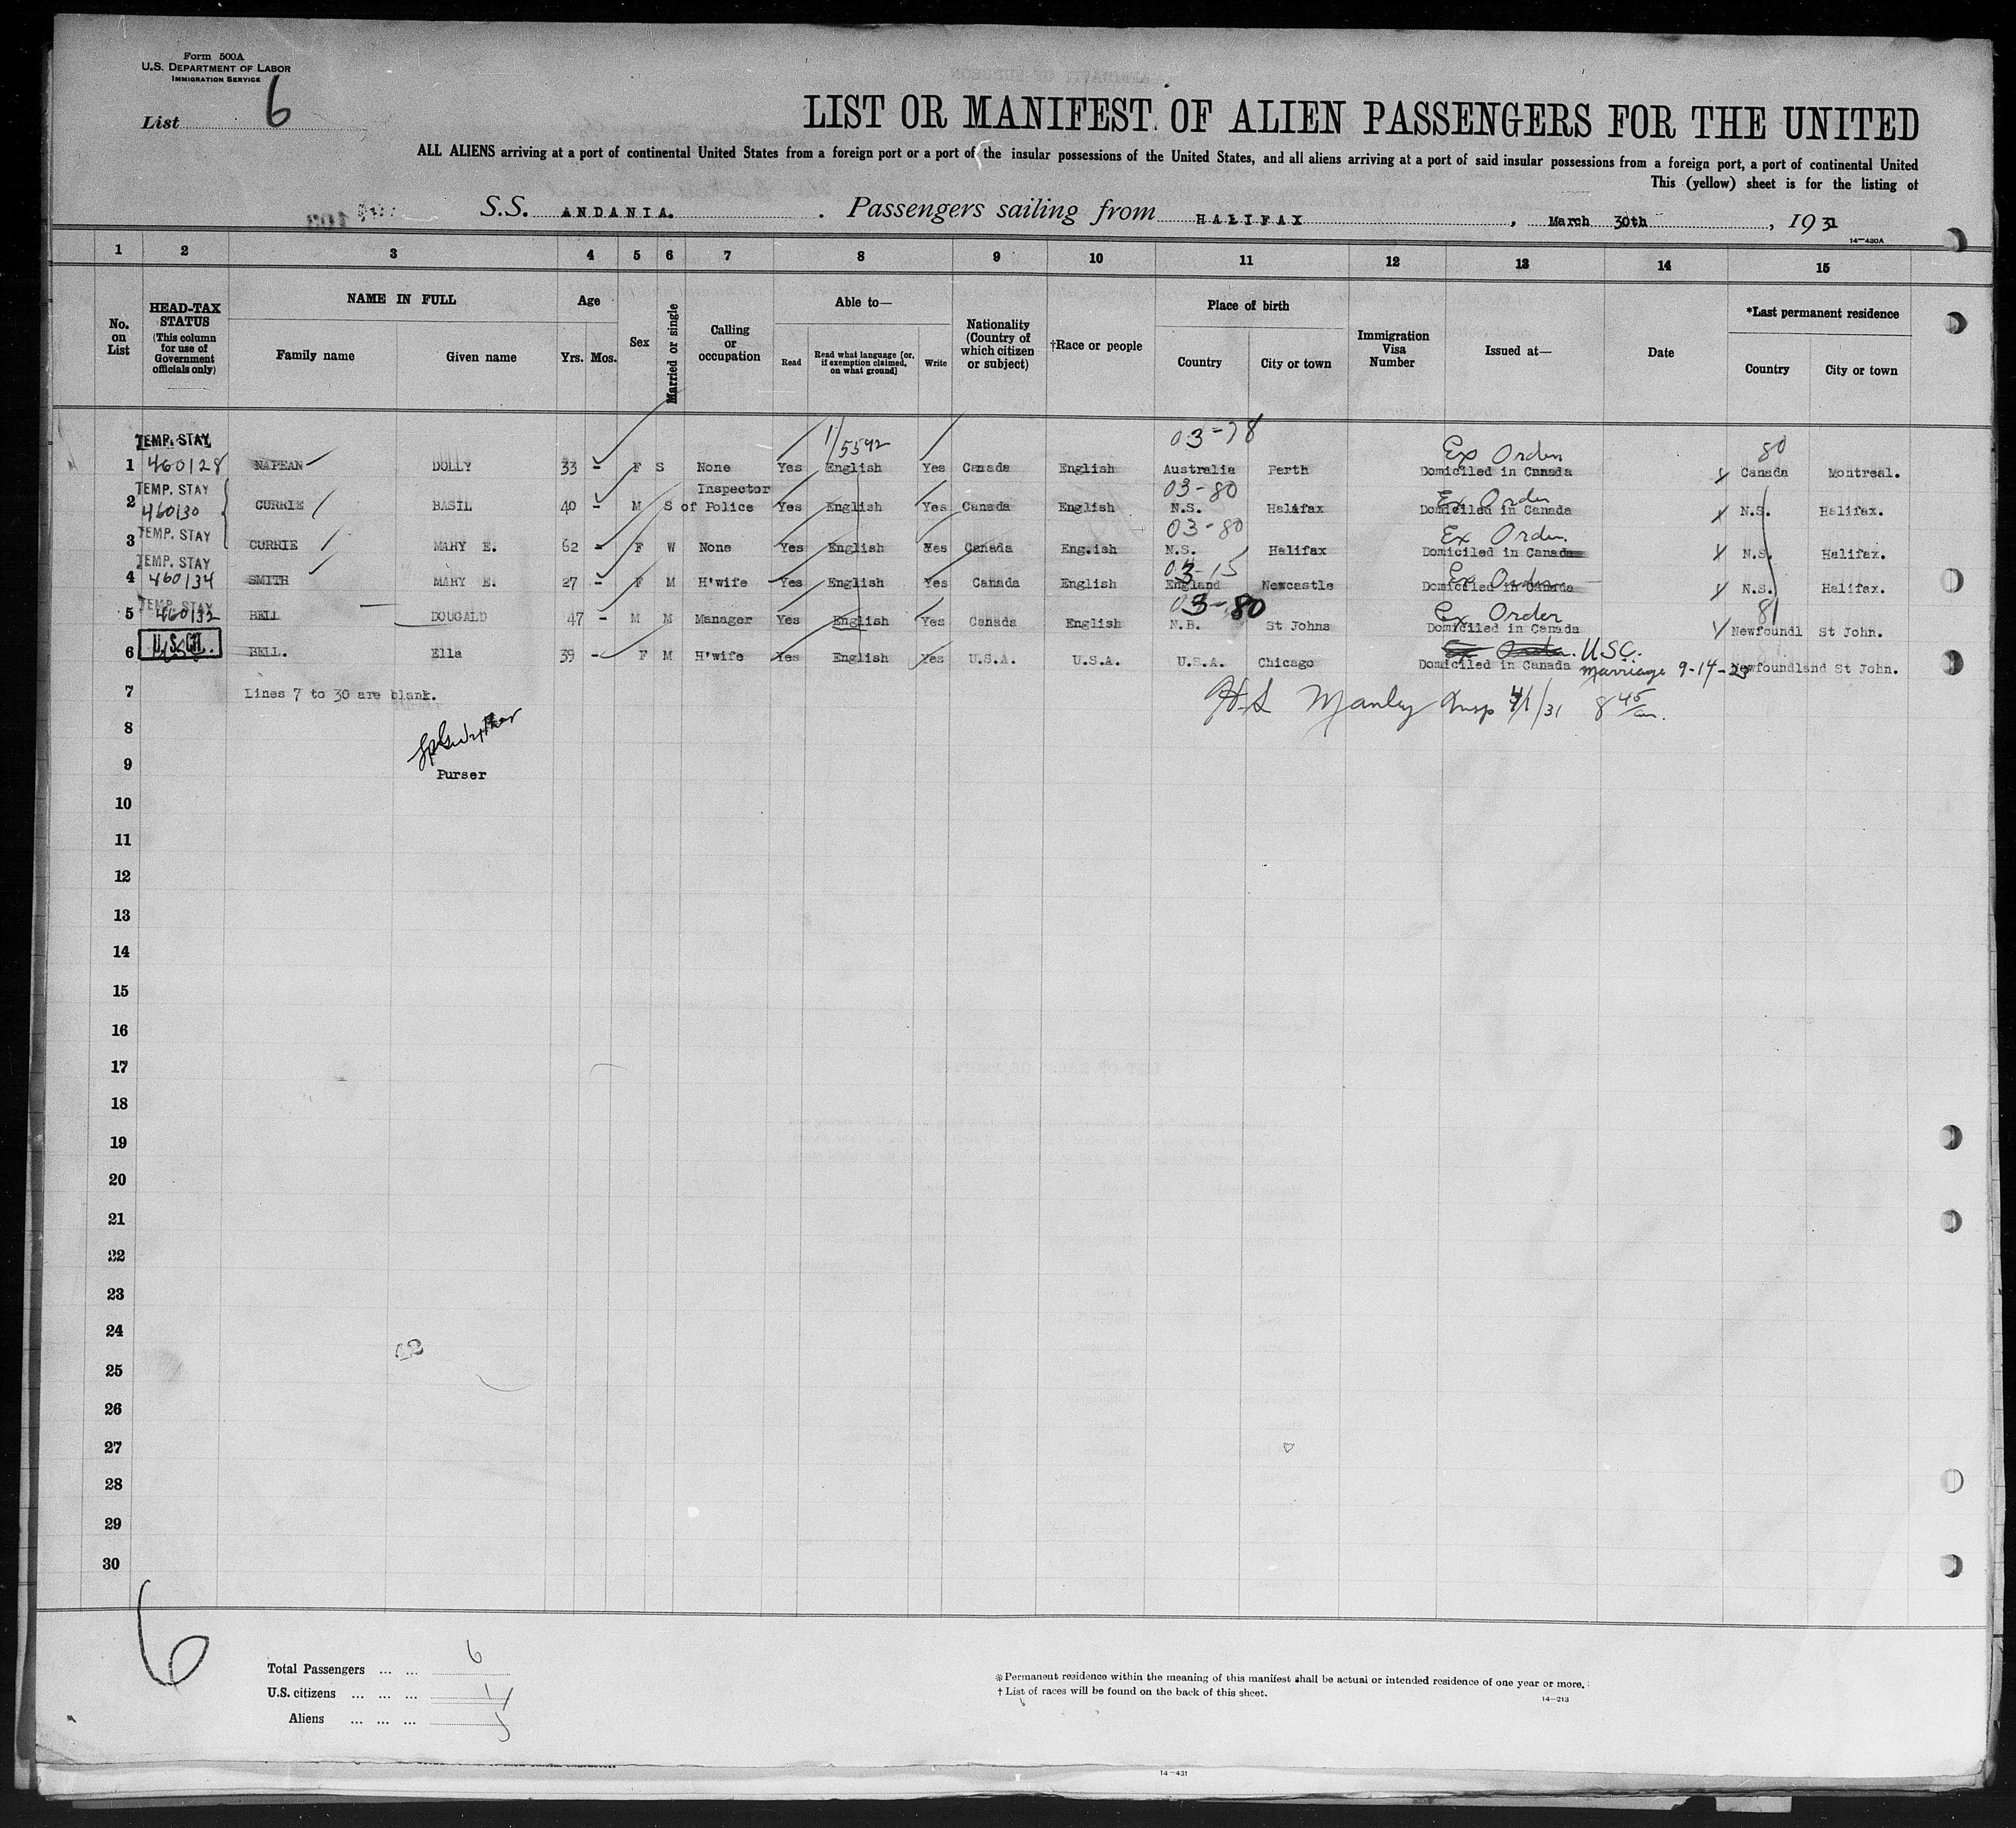 Form 500A
U.S. DEPARTMENT OF LABOR
IMMIGRATION SERVICE
List 6
LIST OR MANIFEST OF ALIEN PASSENGERS FOR THE UNITED
ALL ALIENS arriving at a port of continental United States from a foreign port or a port of the insular possessions of the United States, and all aliens arriving at a port of said insular possessions from a foreign port, a port of continental United
This (yellow) sheet is for the listing of
S.S. ANDANIA. Passengers sailing from HALIFAX, March 30th, 1931
14-430A
1 2 3 4 5 6 7 8 9 10 11 12 13 14 15
No. on List
HEAD-TAX STATUS (This column for use of Government officials only)
NAME IN FULL
Family name Given name
Age
Yrs. Mos.
Sex
Married or single
Calling or occupation
Able to—
Read Read what language [or, if exemption claimed, on what ground] Write
Nationality (Country of which citizen or subject)
†Race or people
Place of birth
Country City or town
Immigration Visa Number
Issued at—
Date
*Last permanent residence
Country City or town
TEMP. STAY 1/5592 03-78 Ex Order 80
1 460128 NAPEAN DOLLY 33 - F S None Yes English Yes Canada English Australia Perth Domiciled in Canada X Canada Montreal.
TEMP. STAY Inspector 03-80 Ex Order
2 460130 CURRIE BASIL 40 - M S of Police Yes English Yes Canada English N.S. Halifax Domiciled in Canada X N.S. Halifax.
TEMP. STAY 03-80 Ex Order.
3 CURRIE MARY E. 62 - F W None Yes English Yes Canada Eng.ish N.S. Halifax Domiciled in Canada X N.S. Halifax.
TEMP. STAY 03-15 Ex Order
4 460134 SMITH MARY E. 27 - F M H'wife Yes English Yes Canada English England Newcastle Domiciled in Canada X N.S. Halifax.
TEMP. STAY 03-80 Ex Order 81
5 460132 BELL DOUGALD 47 - M M Manager Yes English Yes Canada English N.B. St Johns Domiciled in Canada X Newfoundl St John.
U.S. CIT. Ex Order. U.S.C.
6 BELL. Ella 39 - F M H'wife Yes English Yes U.S.A. U.S.A. U.S.A. Chicago Domiciled in Canada marriage 9-14-23 Newfoundland St John.
7 Lines 7 to 30 are blank. H.S Manley Insp 4/1/31 8 45/am.
8
9 Purser
10
11
12
13
14
15
16
17
18
19
20
21
22
23
24
42
25
26
27
28
29
30
6
Total Passengers ... ... 6
U.S. citizens ... ... ... 1
Aliens ... ... ... 5
* Permanent residence within the meaning of this manifest shall be actual or intended residence of one year or more.
† List of races will be found on the back of this sheet.
14-213
14-431